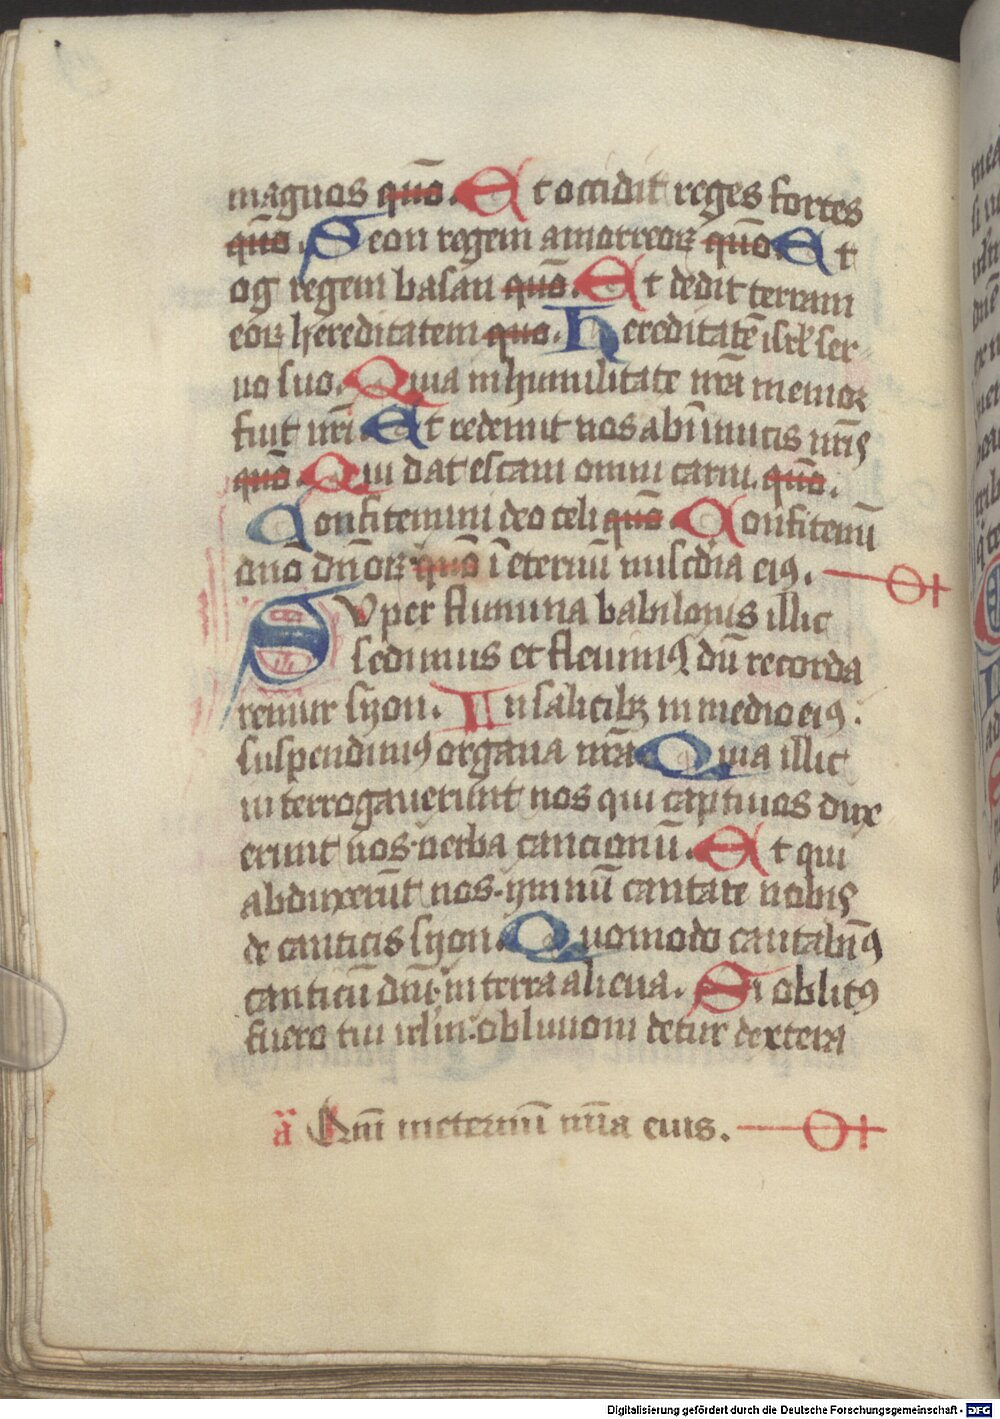 magnos quō. Et occidit reges fortes
quō. Seon regem amorreoꝝ quō Et
og regem basan quō. Et dedit terram
eoꝝ hereditatem quo. Hereditatē isrl̄ ser
uo suo. Quia in humilitate nr̄a memor
fuit nr̄i Et redemit nos ab īimicis nr̄is
quō Qui dat escam omni carni. quō.
Confitemini deo celi quō Confitemī
dnō dn̄oꝝ quō ī eternū miscd̄ia eiꝰ.
Super flumina babilonis illic
sedimus et fleuimꝰ dū recorda
remur syon. In salicibꝫ in medio eiꝰ.
suspendimꝰ organa nr̄a Quia illic
interrogauerunt nos qui captiuos dux
erunt nos uerba cancionū. Et qui
abduxerūt nos. ymnū cantate nobis
de canticis syon. Quomodo cantabimꝰ
canticū dnī in terra aliena. Si oblitꝰ
fuero tui irl̄m: obliuioni detur dextera
a Qm̄ in eternū mīa eius.
Digitalisierung gefördert durch die Deutsche Forschungsgemeinschaft - DFG